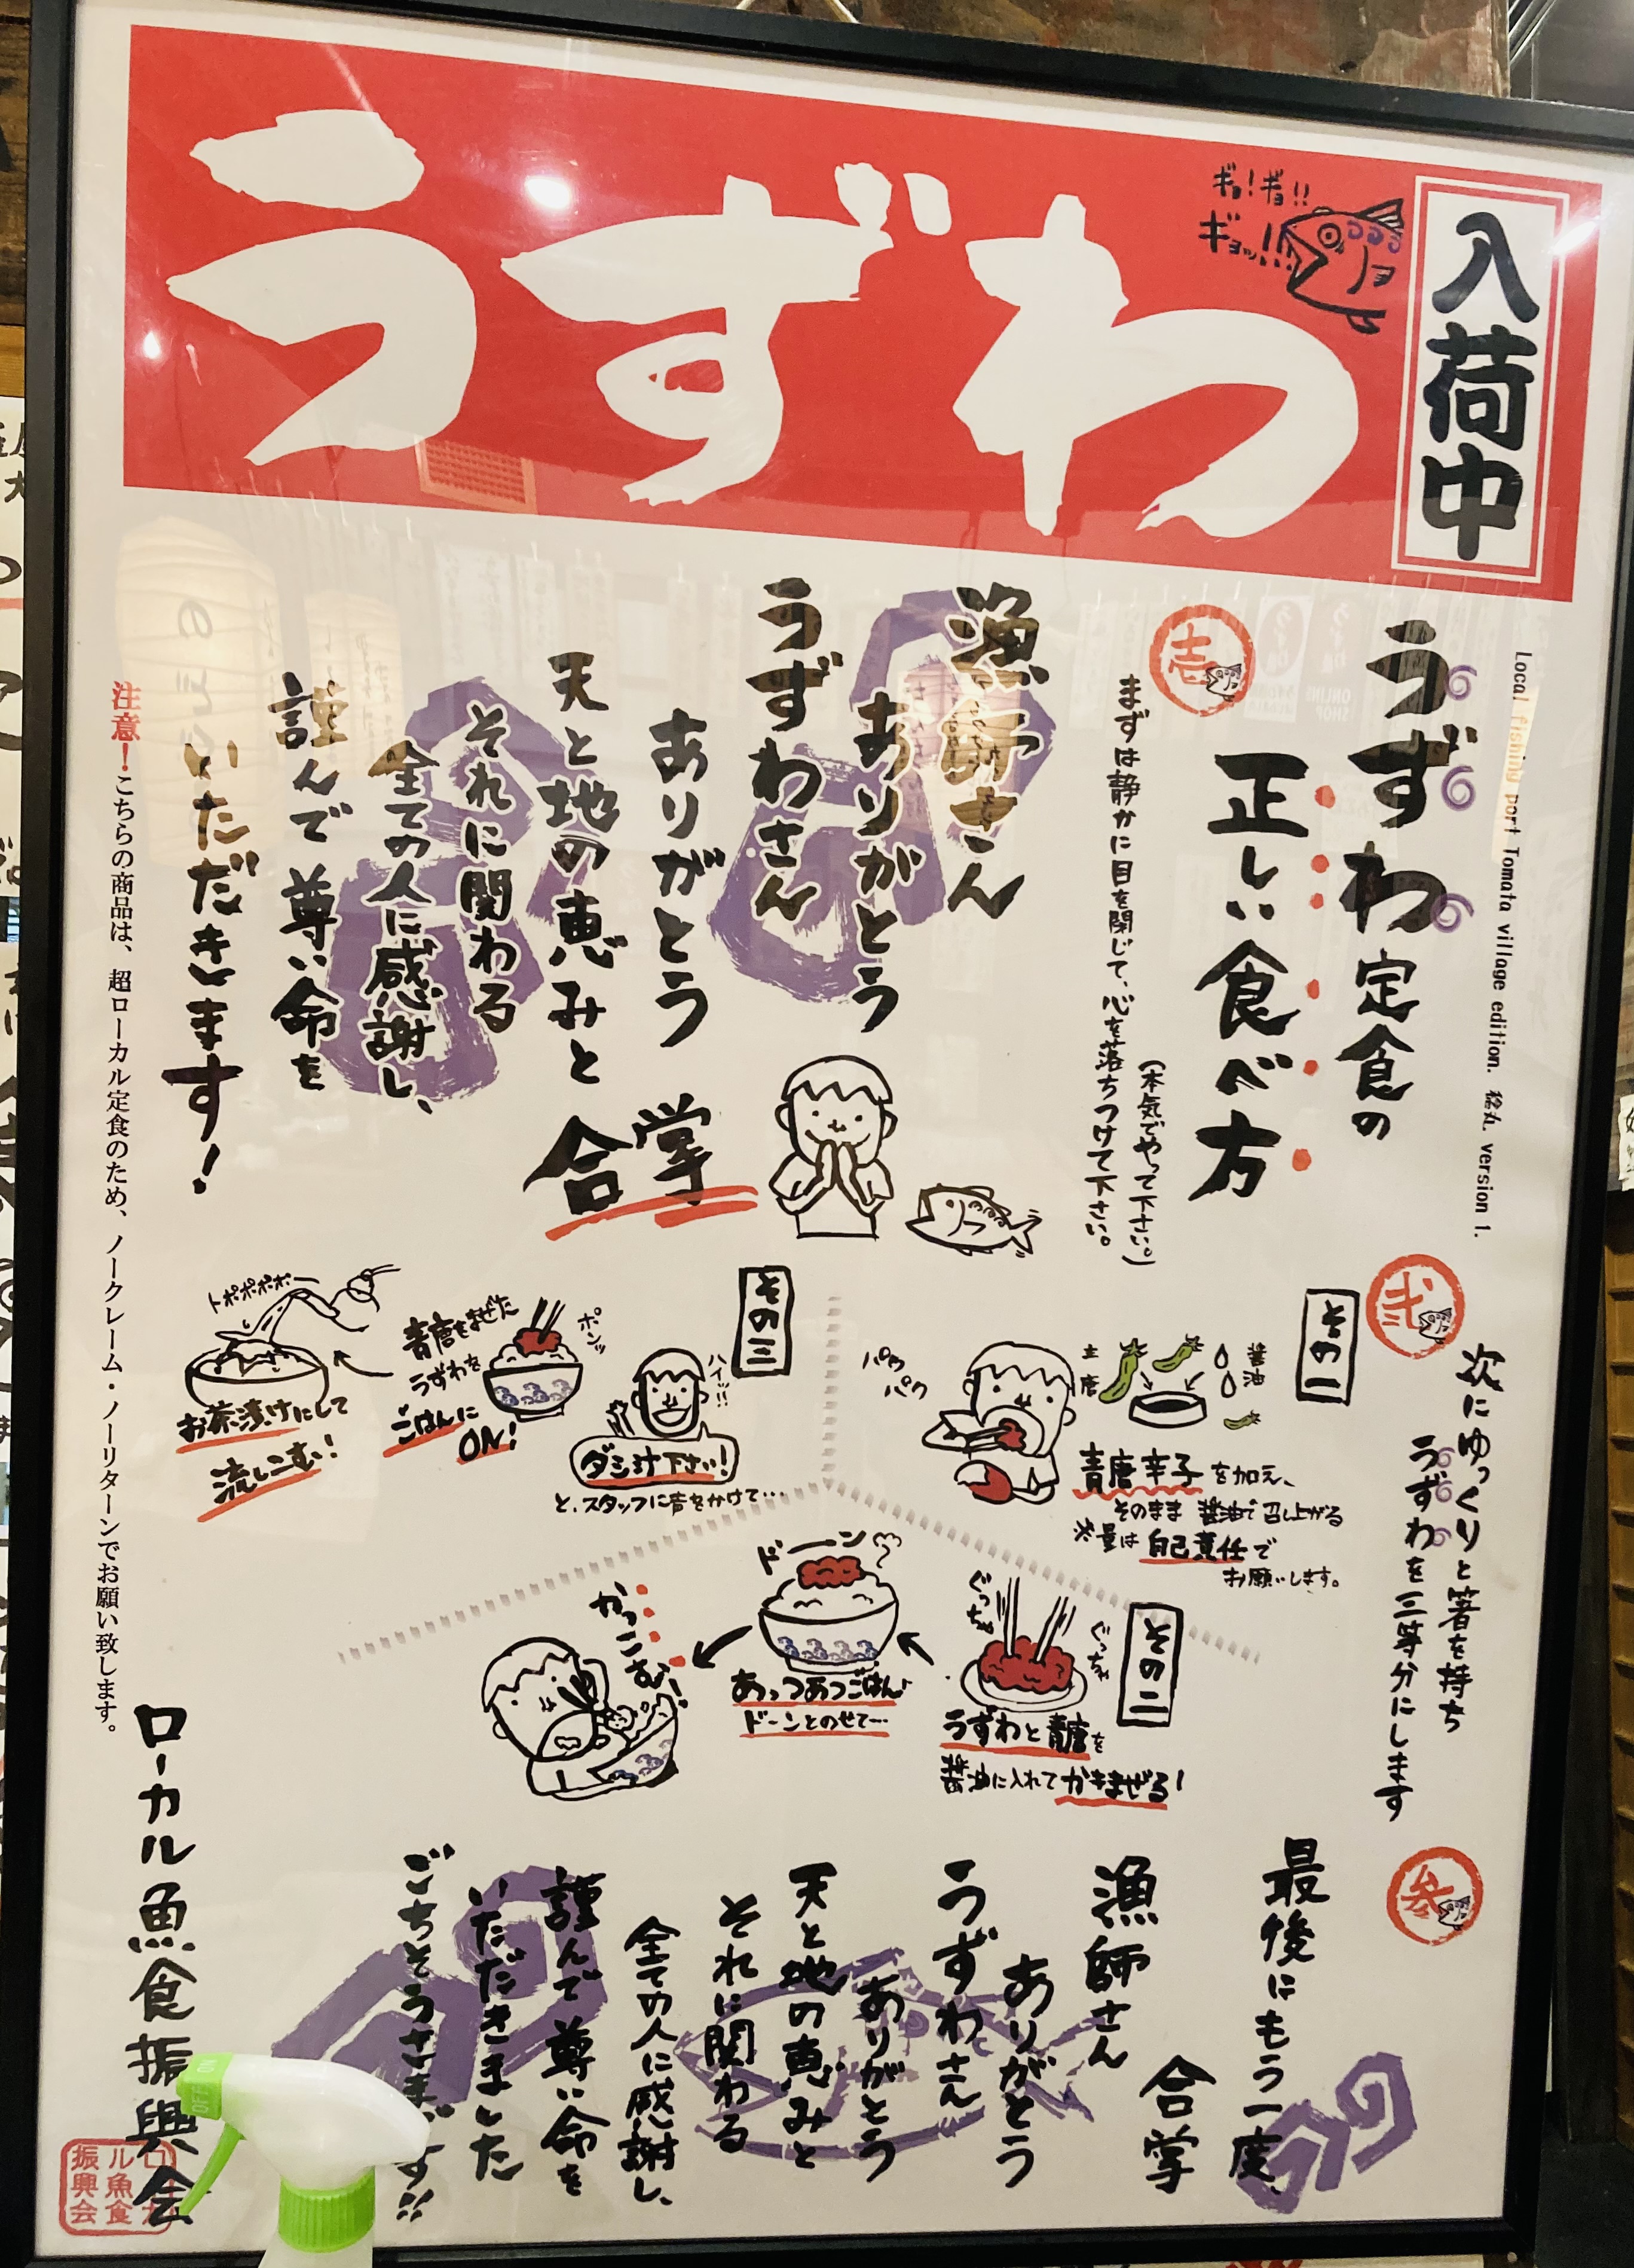 うずわ
入荷中
ギョ!ギョ!!
ギョッ!!
Local fishing port Tomata village edition.
version 1.
うずわ定食の
正しい食べ方
壱
まずは静かに目を閉じて、心を落ちつけて下さい。
(本気でやって下さい。)
漁師さん
ありがとう
うずわさん
ありがとう
天と地の恵みと
それに関わる
全ての人に感謝し、
謹んで尊い命を
いただきます!
合掌
弐
次にゆっくりと箸を持ち
うずわを三等分にします
その一
醤油
青唐辛子を加え、
そのまま醤油で召し上がる
※量は自己責任で
お願いします。
パク
パク
その二
ぐっちゃ
ぐっちゃ
うずわと青唐を
醤油に入れてかきまぜる!
ドーン
あっつあつごはんに
ドーンとのせて…
かっこむ!
その三
ハイッ!!
ダシ汁下さい!
と、スタッフに声をかけて…
ポンッ
青唐をまぜた
うずわを
ごはんに
ON!
トポポポポー
お茶漬けにして
流しこむ!
参
最後にもう一度、
合掌
漁師さん
ありがとう
うずわさん
ありがとう
天と地の恵みと
それに関わる
全ての人に感謝し、
謹んで尊い命を
いただきました
ごちそうさまです!!
注意!こちらの商品は、超ローカル定食のため、ノークレーム・ノーリターンでお願い致します。
ローカル魚食振興会
ル魚食
振興会
OFF